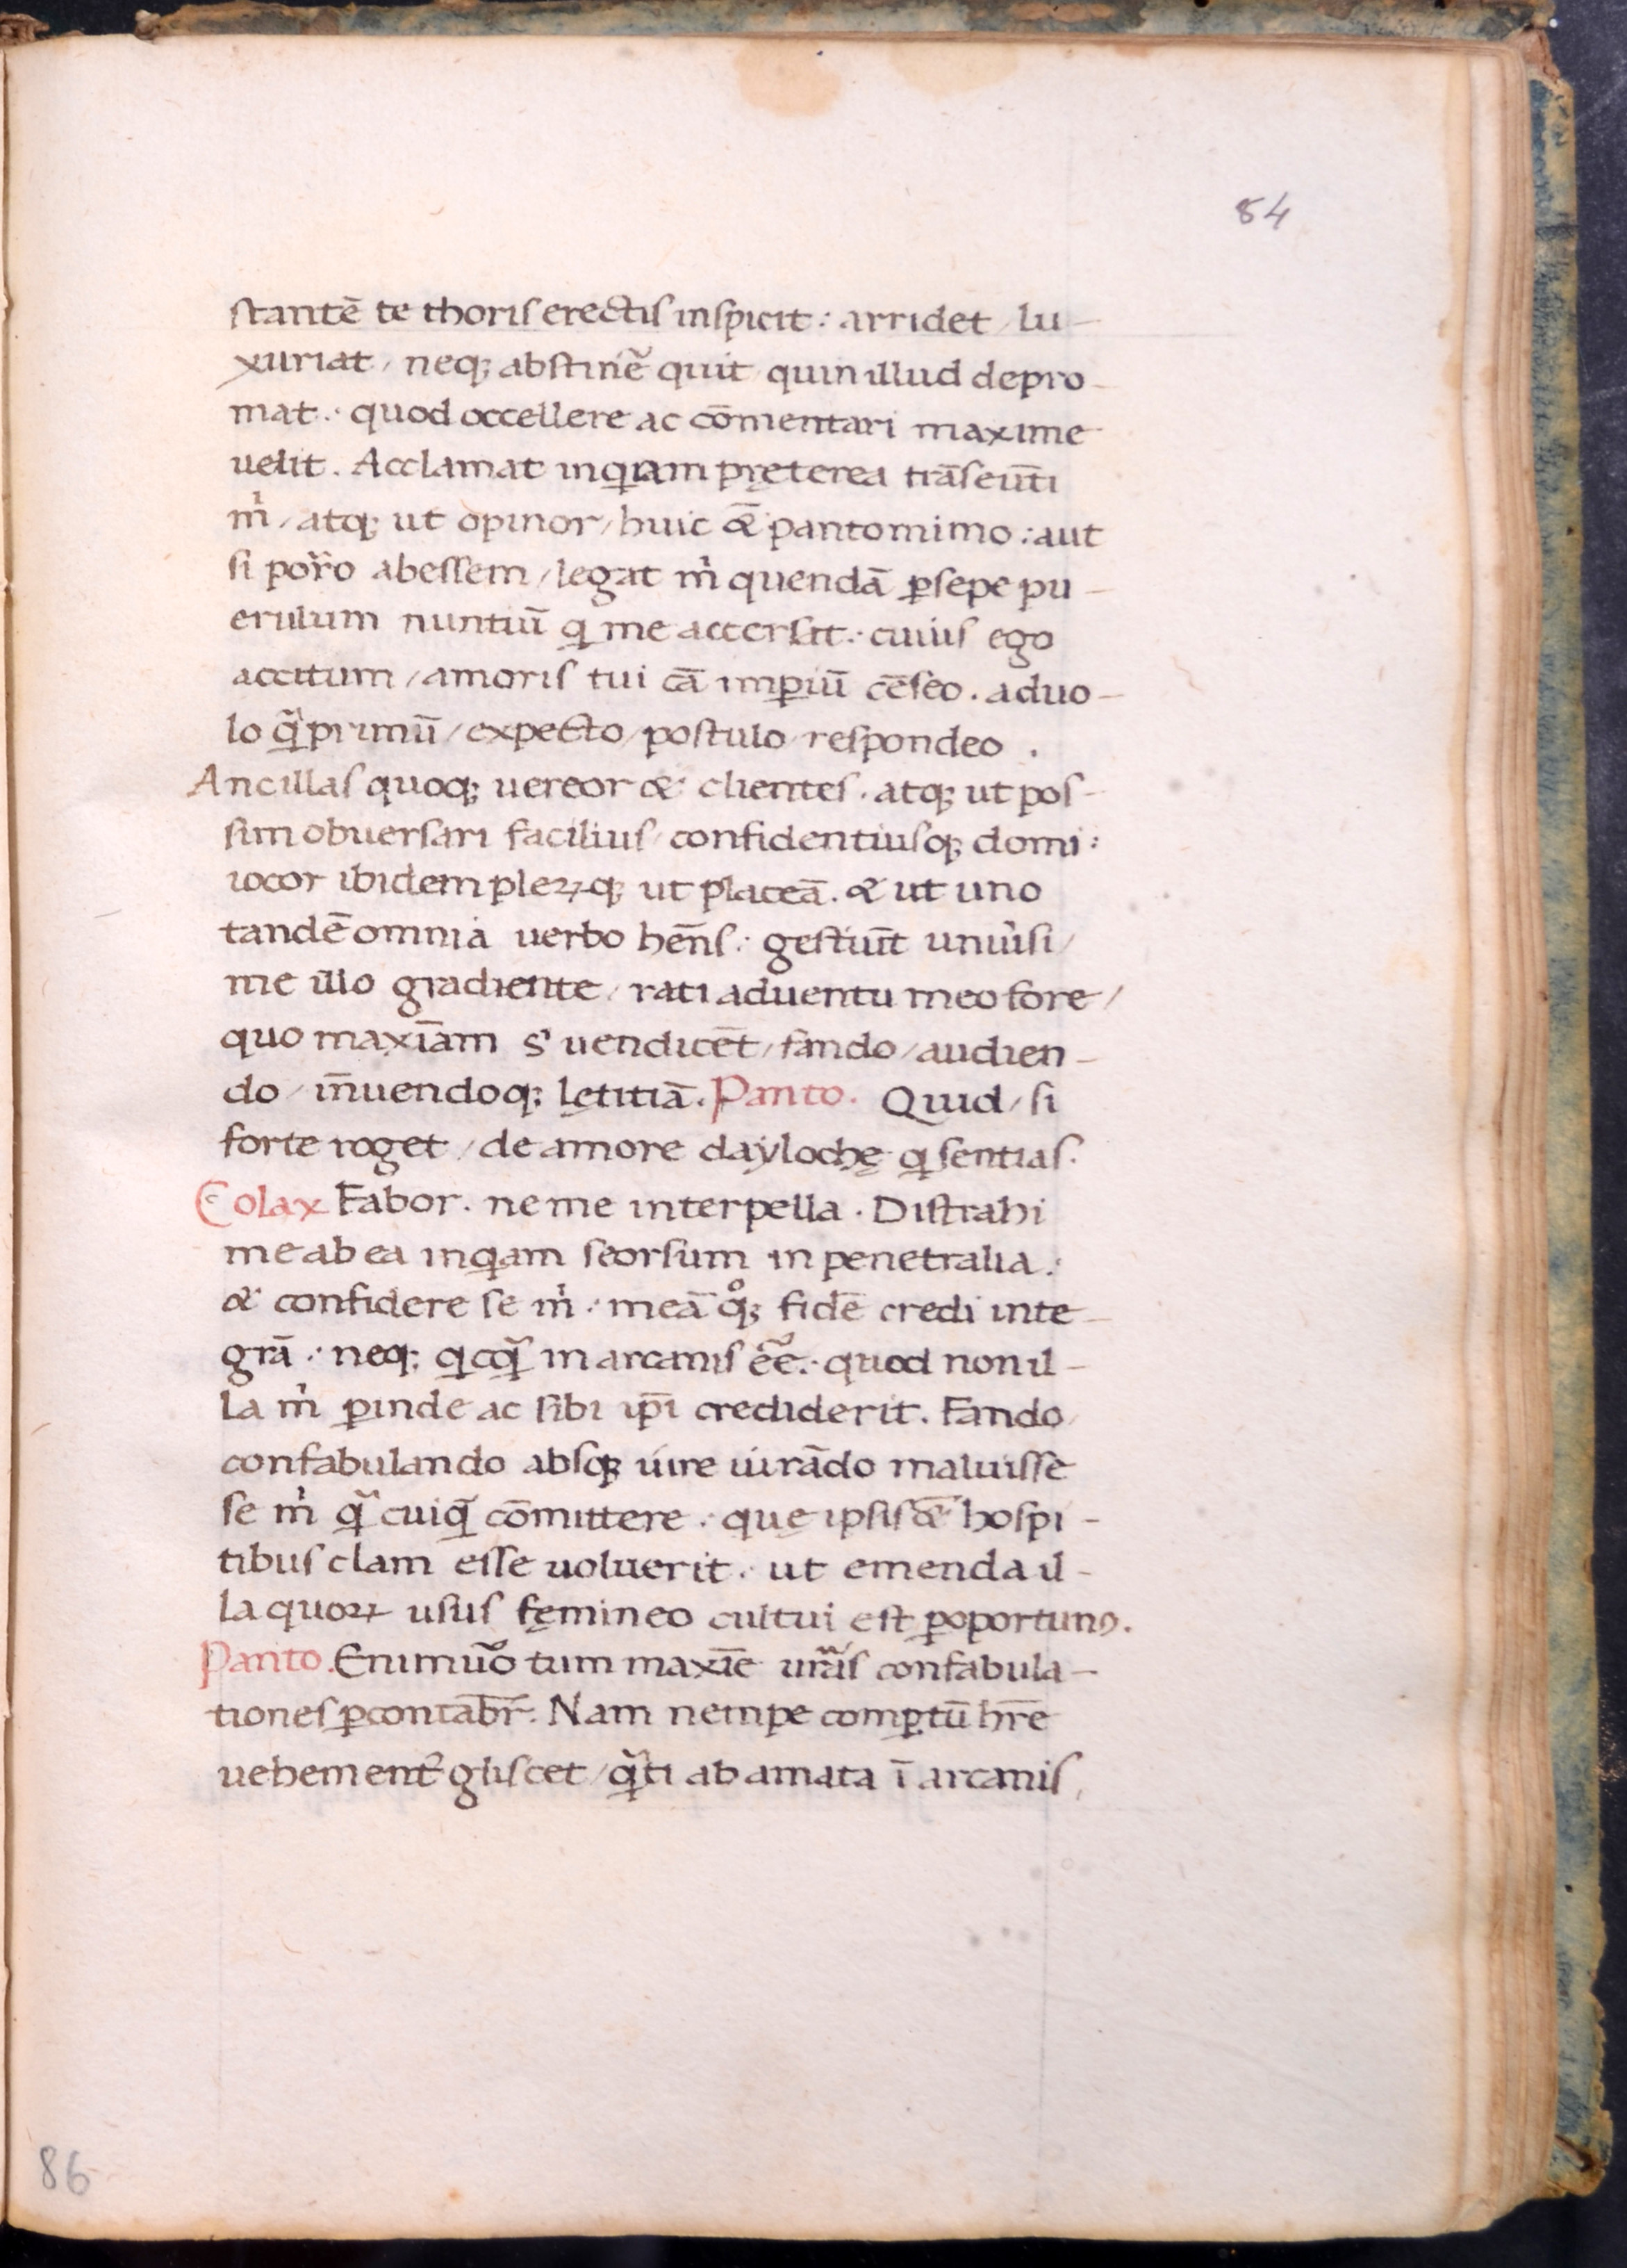 84
stantē te thoris erectis inspicit: arridet / lu-
xuriat / neq; abstinē̃ quit quin illud depro-
mat: quod occellere ac cōmentari maxime
uelit. Acclamat inqiam pręterea trāseūti
m̓ / atq; ut opinor / huic &̄ pantomimo: aut
si por̃o abessem / legat m̓ quendā ꝑsepe pu-
erulum nuntiū qi me accersit: cuius ego
accitum / amoris tui cā imꝑiū cēseo. aduo-
lo q̃primū / expecto / postulo respondeo.
Ancillas quoq; uereor & clientes. atq; ut pos-
sim obuersari facilius / confidentiusq; domi:
iocor ibidem pleꝝq; ut placeā. & ut uno
tandē omnia uerbo hēns: gestiūt uniũsi /
me illo gradiente / rati aduentu meo fore /
quo maxīam s' uendicēt / fando / audien-
do / īnuendoq; lętitiā. Panto. Quid / si
forte roget / de amore daẏlochę qi sentias.
Colax Fabor. ne me interpella. Distrahi
me ab ea inqiam seorsum in penetralia:
& confidere se m̓: meā qͦ; fidē credi inte-
grā: neq; qicq̃ in arcanis eẽ: quod non il-
la m̓ ꝑinde ac sibi ip̄i crediderit. Fando /
confabulando absq; iure iurādo maluisse
se m̓ q̃ cuiq̃ cōmittere: quę ipsis &̄ hospi-
tibus clam esse uoluerit: ut emenda il-
la quoꝝ usus fęmineo cultui est ꝑoportunꝰ.
Panto. Enimũo tum maxīe ur̃ãs confabula-
tiones ꝑcontab̄r̄. Nam nempe comꝑtū hr̄e
uehement᷑ gliscet / q̃ti ab amata ī arcanis,
86